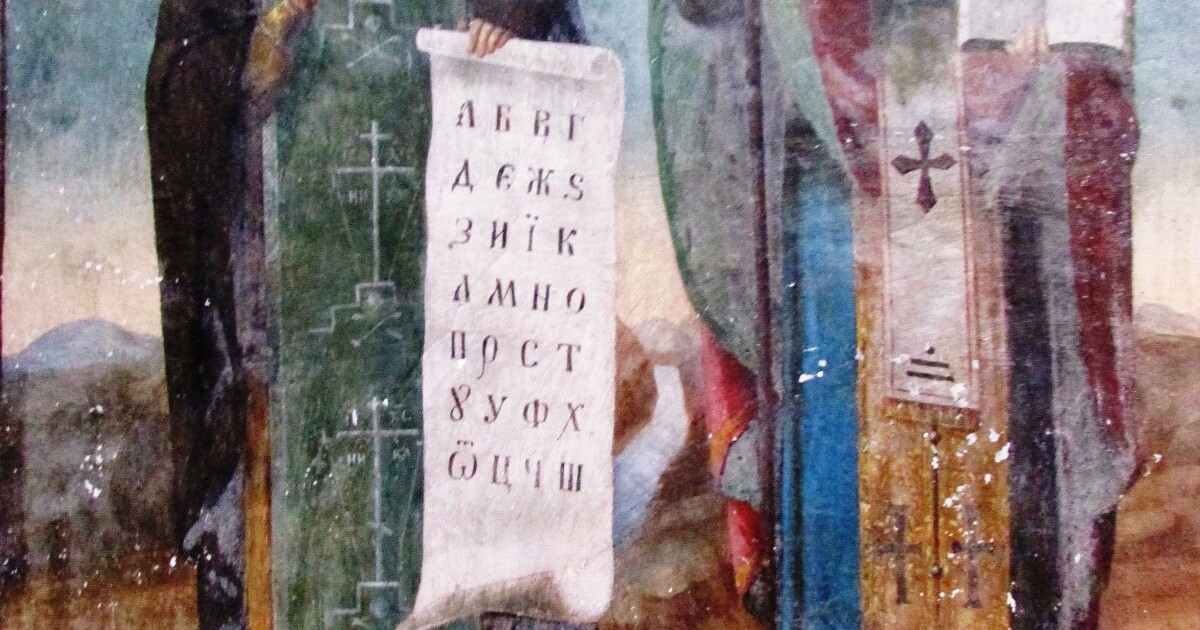 А Б В Г
Д Є Ж Ѕ
З И Ї К
Л М Н О
П Р С Т
Ȣ У Ф Х
Ѿ Ц Ч Ш